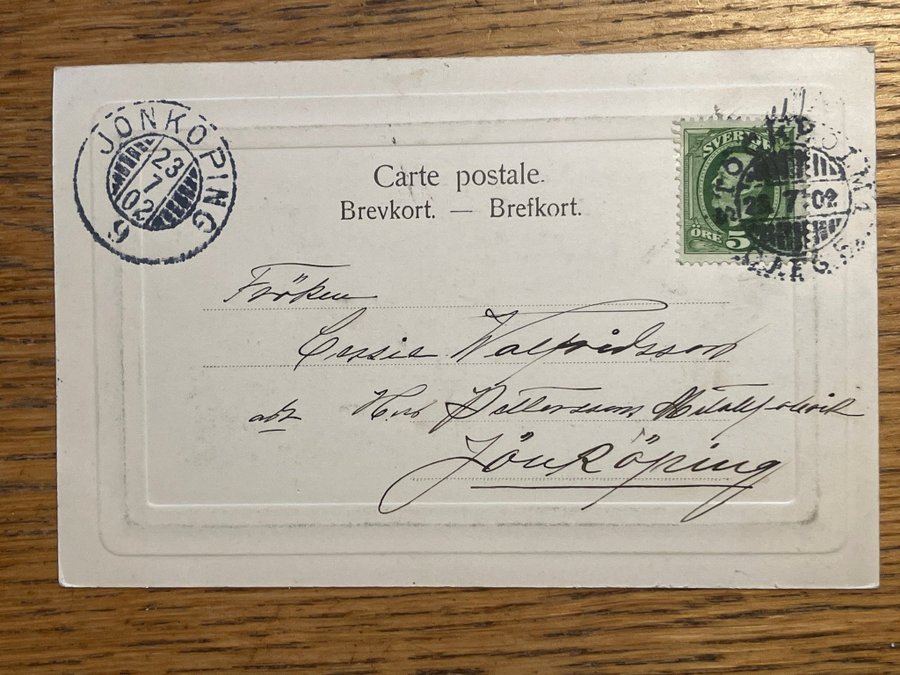 JÖNKÖPING
23
7
02
6
Carte postale.
Brevkort. — Brefkort.
SVERIGE
ÖRE 5
STOCKHOLM
23 7 02
Fröken
Cessie Walfridsson
adr Herr Petterssons Metallfabrik
Jönköping